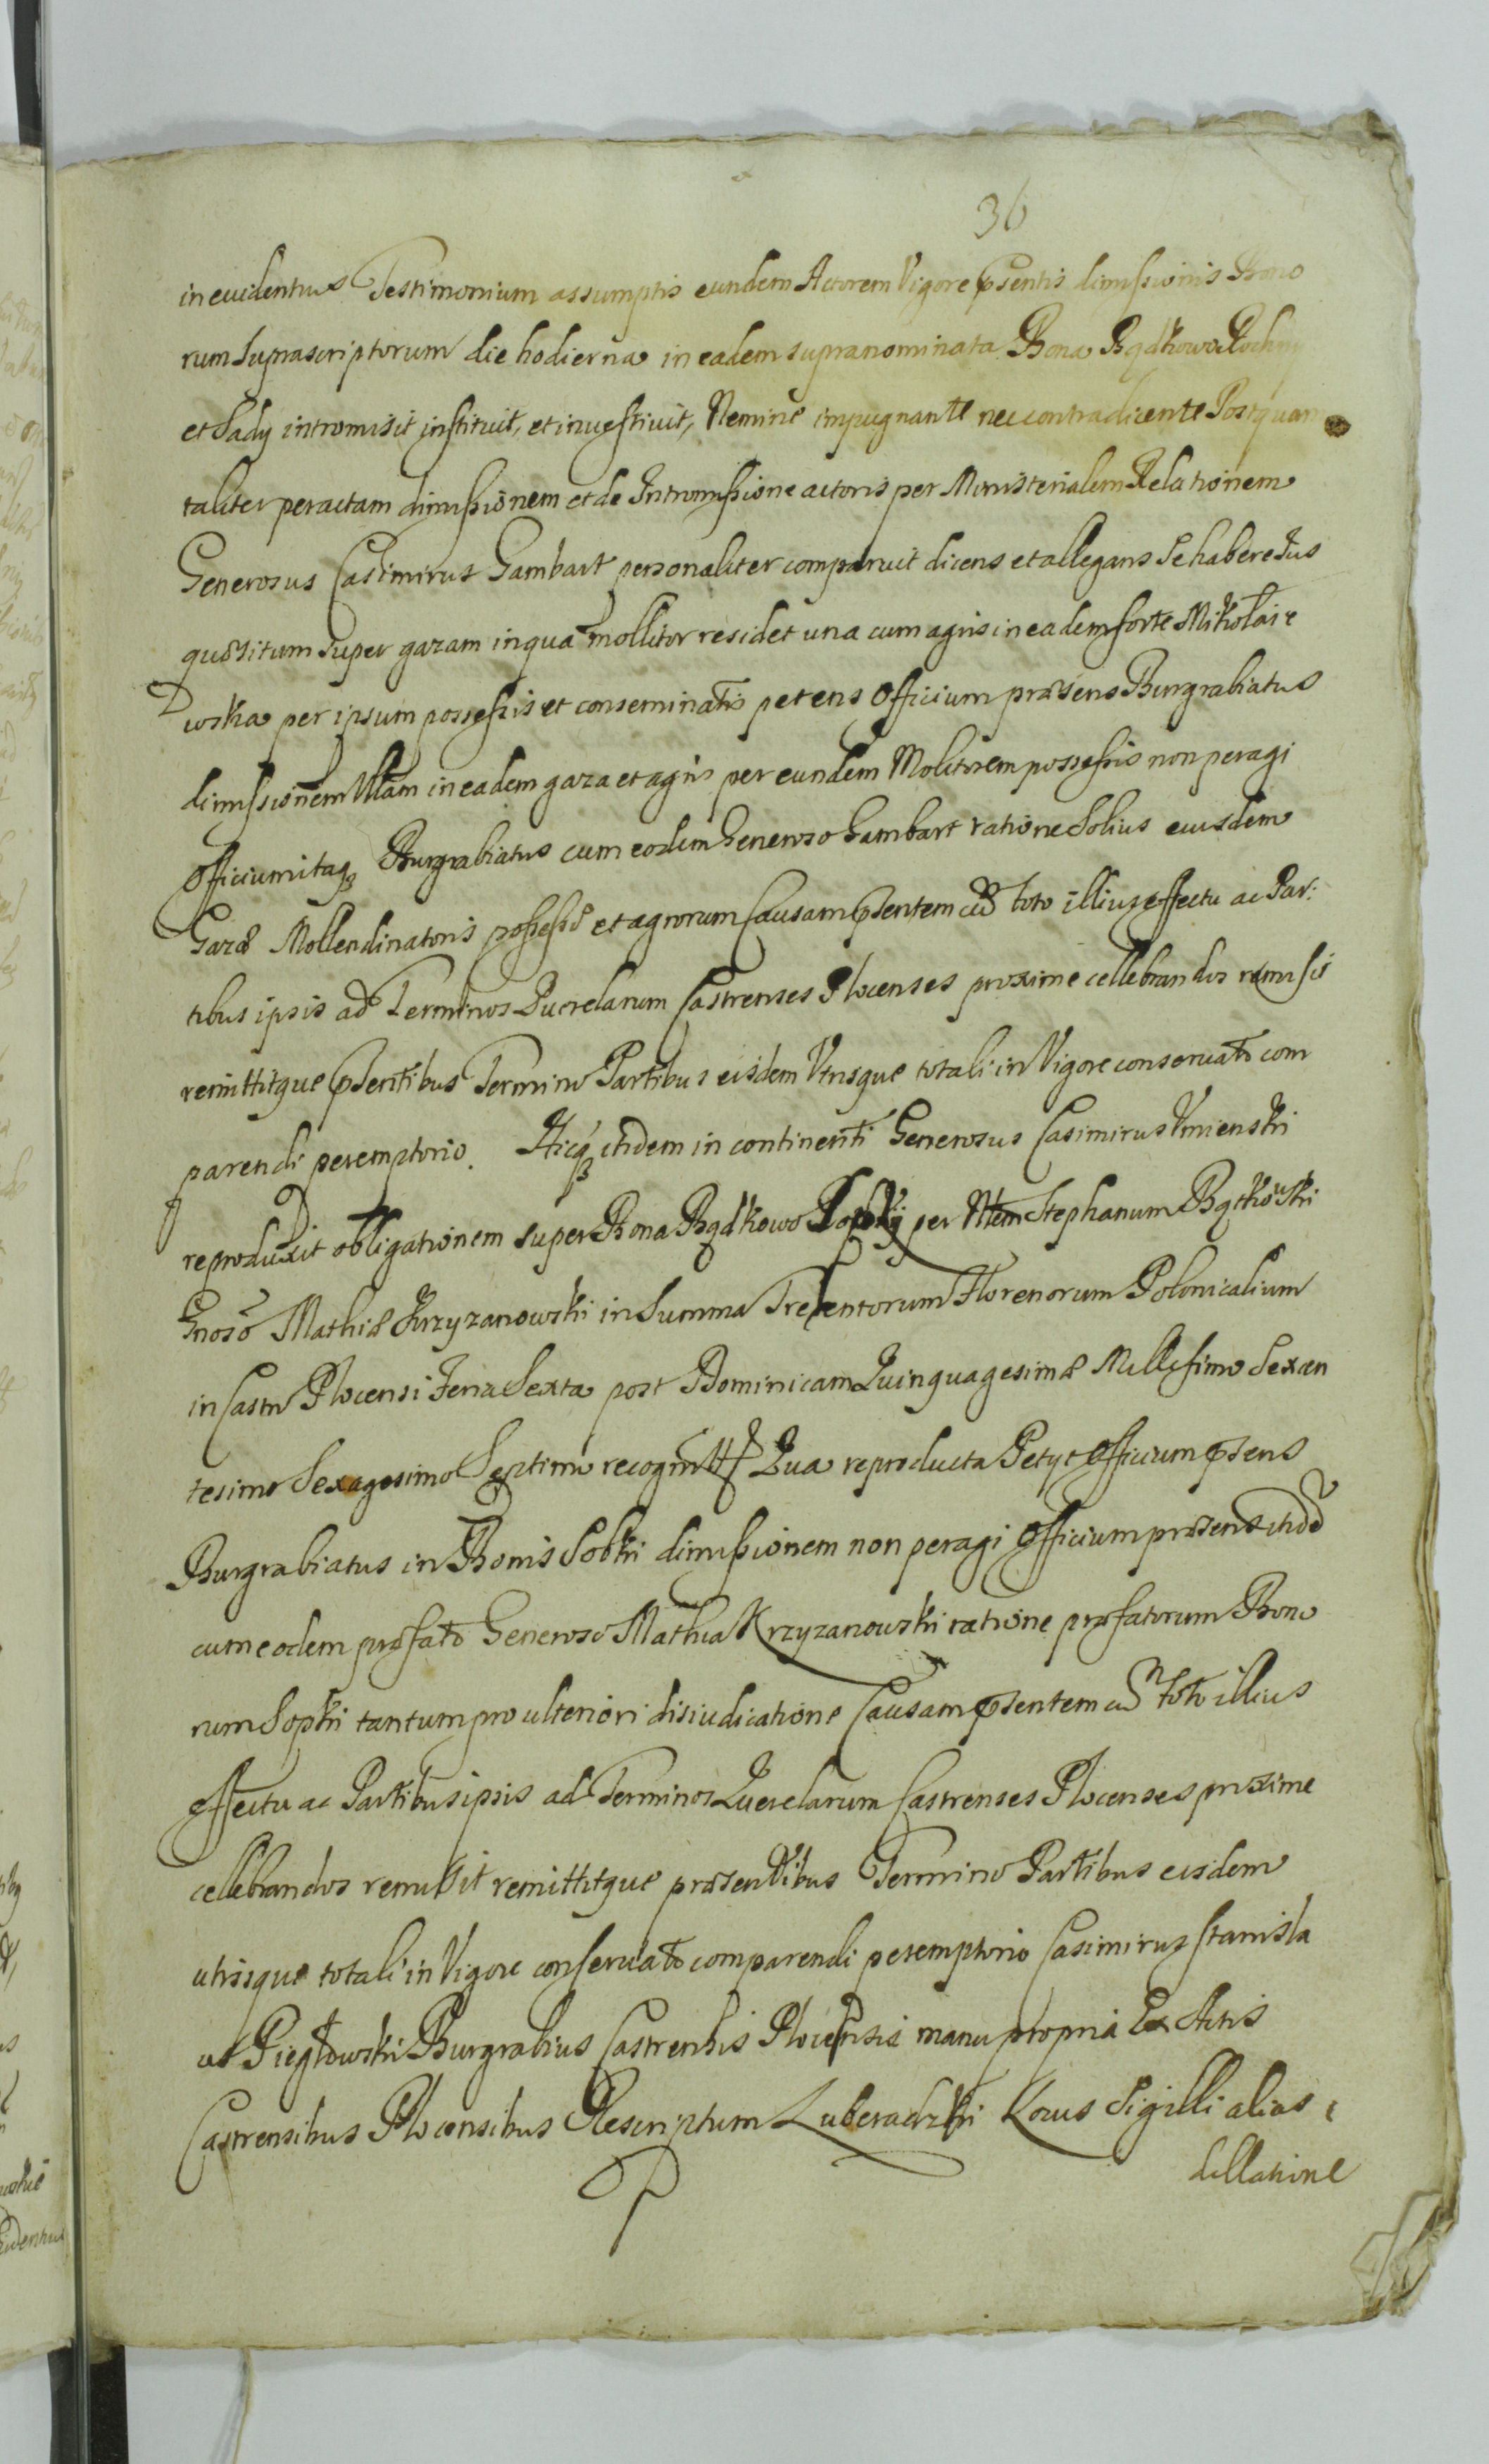 36
in euidentius Testimonium assumptis eundem Actorem Vigore pñsentis dimissionis Bono
rum supascriptorum die hodierna in eadem supranominata Bona Bądkowo
et Sady intromisit instituit, et inuestiuit, Nemine impugnante nec contradicente Postquam
taliter peractam dimissionem et de Intromissione actoris per Ministerialem Relationem
Generosus Casimirus Gambart personaliter comparuit dicens et allegans Se habere Jus
quæsitum super gazam in qua mollitor residet una cum agris in eadem sorte Mikołaie
wska per ipsum possessis et conseminatis petens Officium præsens Burgrabiatus
dimissionem Ullam in eadem gaza et agris per eundem Molitorem possessis non peragi
Officium itaq3 Burgrabiatus cum eodem Generoso Gambart ratione Solius eiusdem
Gazæ Mollendinatoris possessæ et agrorum Causam pñsentem cũ toto illius effectu ac Par:
tibus ipsis ad Terminos Querelarum Castrenses Plocenses proxime cellebrandos remisit
remittitque pñsentibus Termino Partibus eisdem Utrisque totali in Vigore conseruato com
parendi peremptorio. Hicq3 itidem in continenti Generosus Casimirus Umienski
reproduxit obligationem super Bona Bądkowo per Nlem Stephanum Bątkowski
Gnoso Mathiæ Krzyzanowski in Summa Trecentorum Florenorum Polonicalium
in Castro Plocensi Feria Sexta post Dominicam Quinquagesimæ Millesimo Sexcen
tesimo Sexagesimo Septimo recognitt Qua reproducta Petyt Officium pñsens
Burgrabiatus in Bonis Sobki dimissionem non peragi Officium præsens itidẽ
cum eodem præfato Generoso Mathia Krzyzanowski ratione præfatorum Bono
rum Sopki tantum pro ulteriori disiudicatione Causam pñsentem cũ toto illius
effectu ac Partibus ipsis ad Terminos Querelarum Castrenses Plocenses proxime
cellebrandos remisit remittitque præsentibus Termino Partibus eisdem
utrisque totali in Vigore conseruato comparendi peremptorio Casimirus Stanisla
us Piegłowski Burgrabius Castrensis Plocensis manu propria Ex Actis
Castrensibus Plocensibus Rescriptum Luberadzki Locus Sigilli alias
dillatione